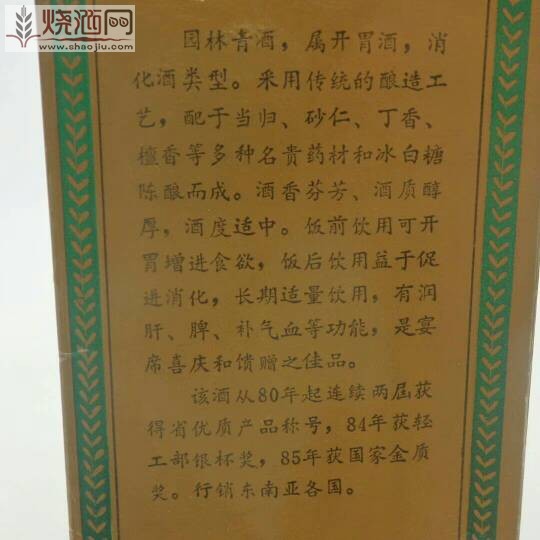 烧酒网
www.shaojiu.com
园林青酒，属开胃酒，消
化酒类型。采用传统的酿造工
艺，配于当归、砂仁、丁香、
檀香等多种名贵药材和冰白糖
陈酿而成。酒香芬芳、酒质醇
厚，酒度适中。饭前饮用可开
胃增进食欲，饭后饮用益于促
进消化，长期适量饮用，有润
肝、脾、补气血等功能，是宴
席喜庆和馈赠之佳品。
该酒从80年起连续两届获
得省优质产品称号，84年获轻
工部银杯奖，85年获国家金质
奖。行销东南亚各国。